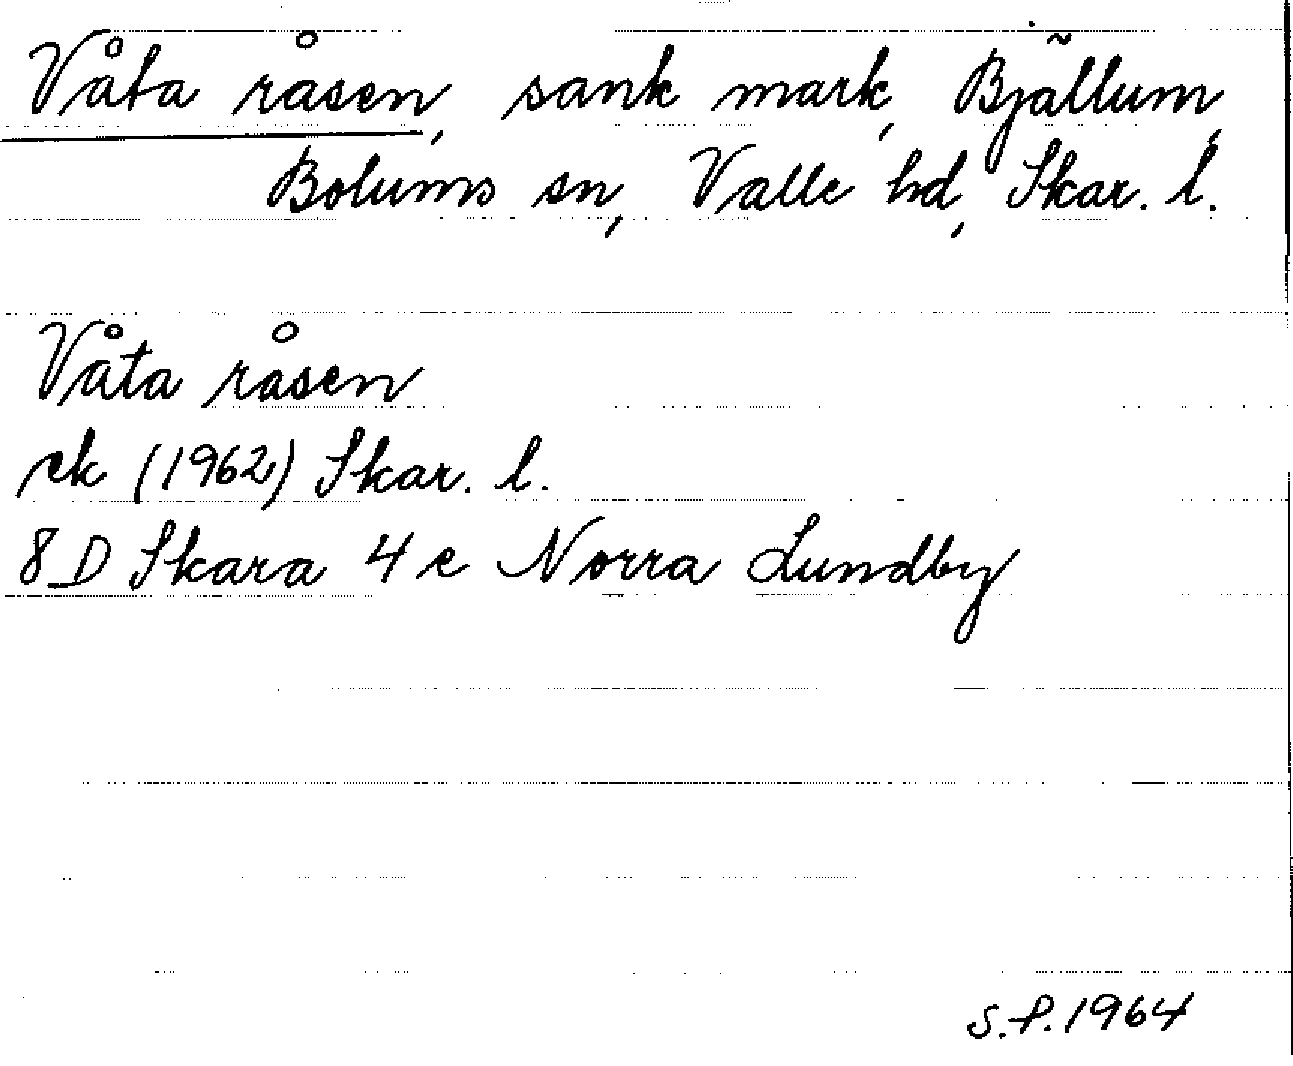 Våta råsen, sank mark, Bjällum,
Bolums sn, Valle hd, Skar. l.
Våta råsen
ek (1962) Skar. l.
8 D Skara 4 e Norra Lundby
S.P. 1964